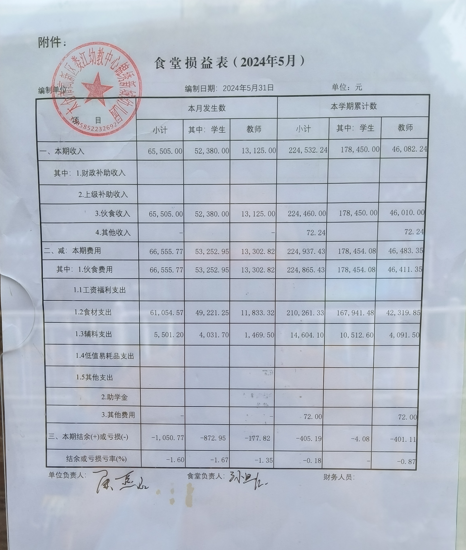 附件：
食堂损益表（2024年5月）
编制单位：
编制日期：2024年5月31日
单位：元
项 目 本月发生数 本学期累计数
小计 其中：学生 教师 小计 其中：学生 教师
一、本期收入 65,505.00 52,380.00 13,125.00 224,532.24 178,450.00 46,082.24
其中：1.财政补助收入
2.上级补助收入
3.伙食收入 65,505.00 52,380.00 13,125.00 224,460.00 178,450.00 46,010.00
4.其他收入 - - - 72.24 72.24
二、减：本期费用 66,555.77 53,252.95 13,302.82 224,937.43 178,454.08 46,483.35
其中：1.伙食费用 66,555.77 53,252.95 13,302.82 224,865.43 178,454.08 46,411.35
1.1工资福利支出
1.2食材支出 61,054.57 49,221.25 11,833.32 210,261.33 167,941.48 42,319.85
1.3辅料支出 5,501.20 4,031.70 1,469.50 14,604.10 10,512.60 4,091.50
1.4低值易耗品支出
1.5其他支出
2.助学金
3.其他费用 - - 72.00 72.00
三、本期结余(+)或亏损(-) -1,050.77 -872.95 -177.82 -405.19 -4.08 -401.11
结余或亏损亏率(%) -1.60 -1.67 -1.35 -0.18 - -0.87
单位负责人： 食堂负责人： 财务人员：